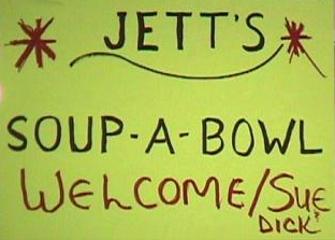 JETT'S
SOUP-A-BOWL
WELCOME/SUE
DICK?